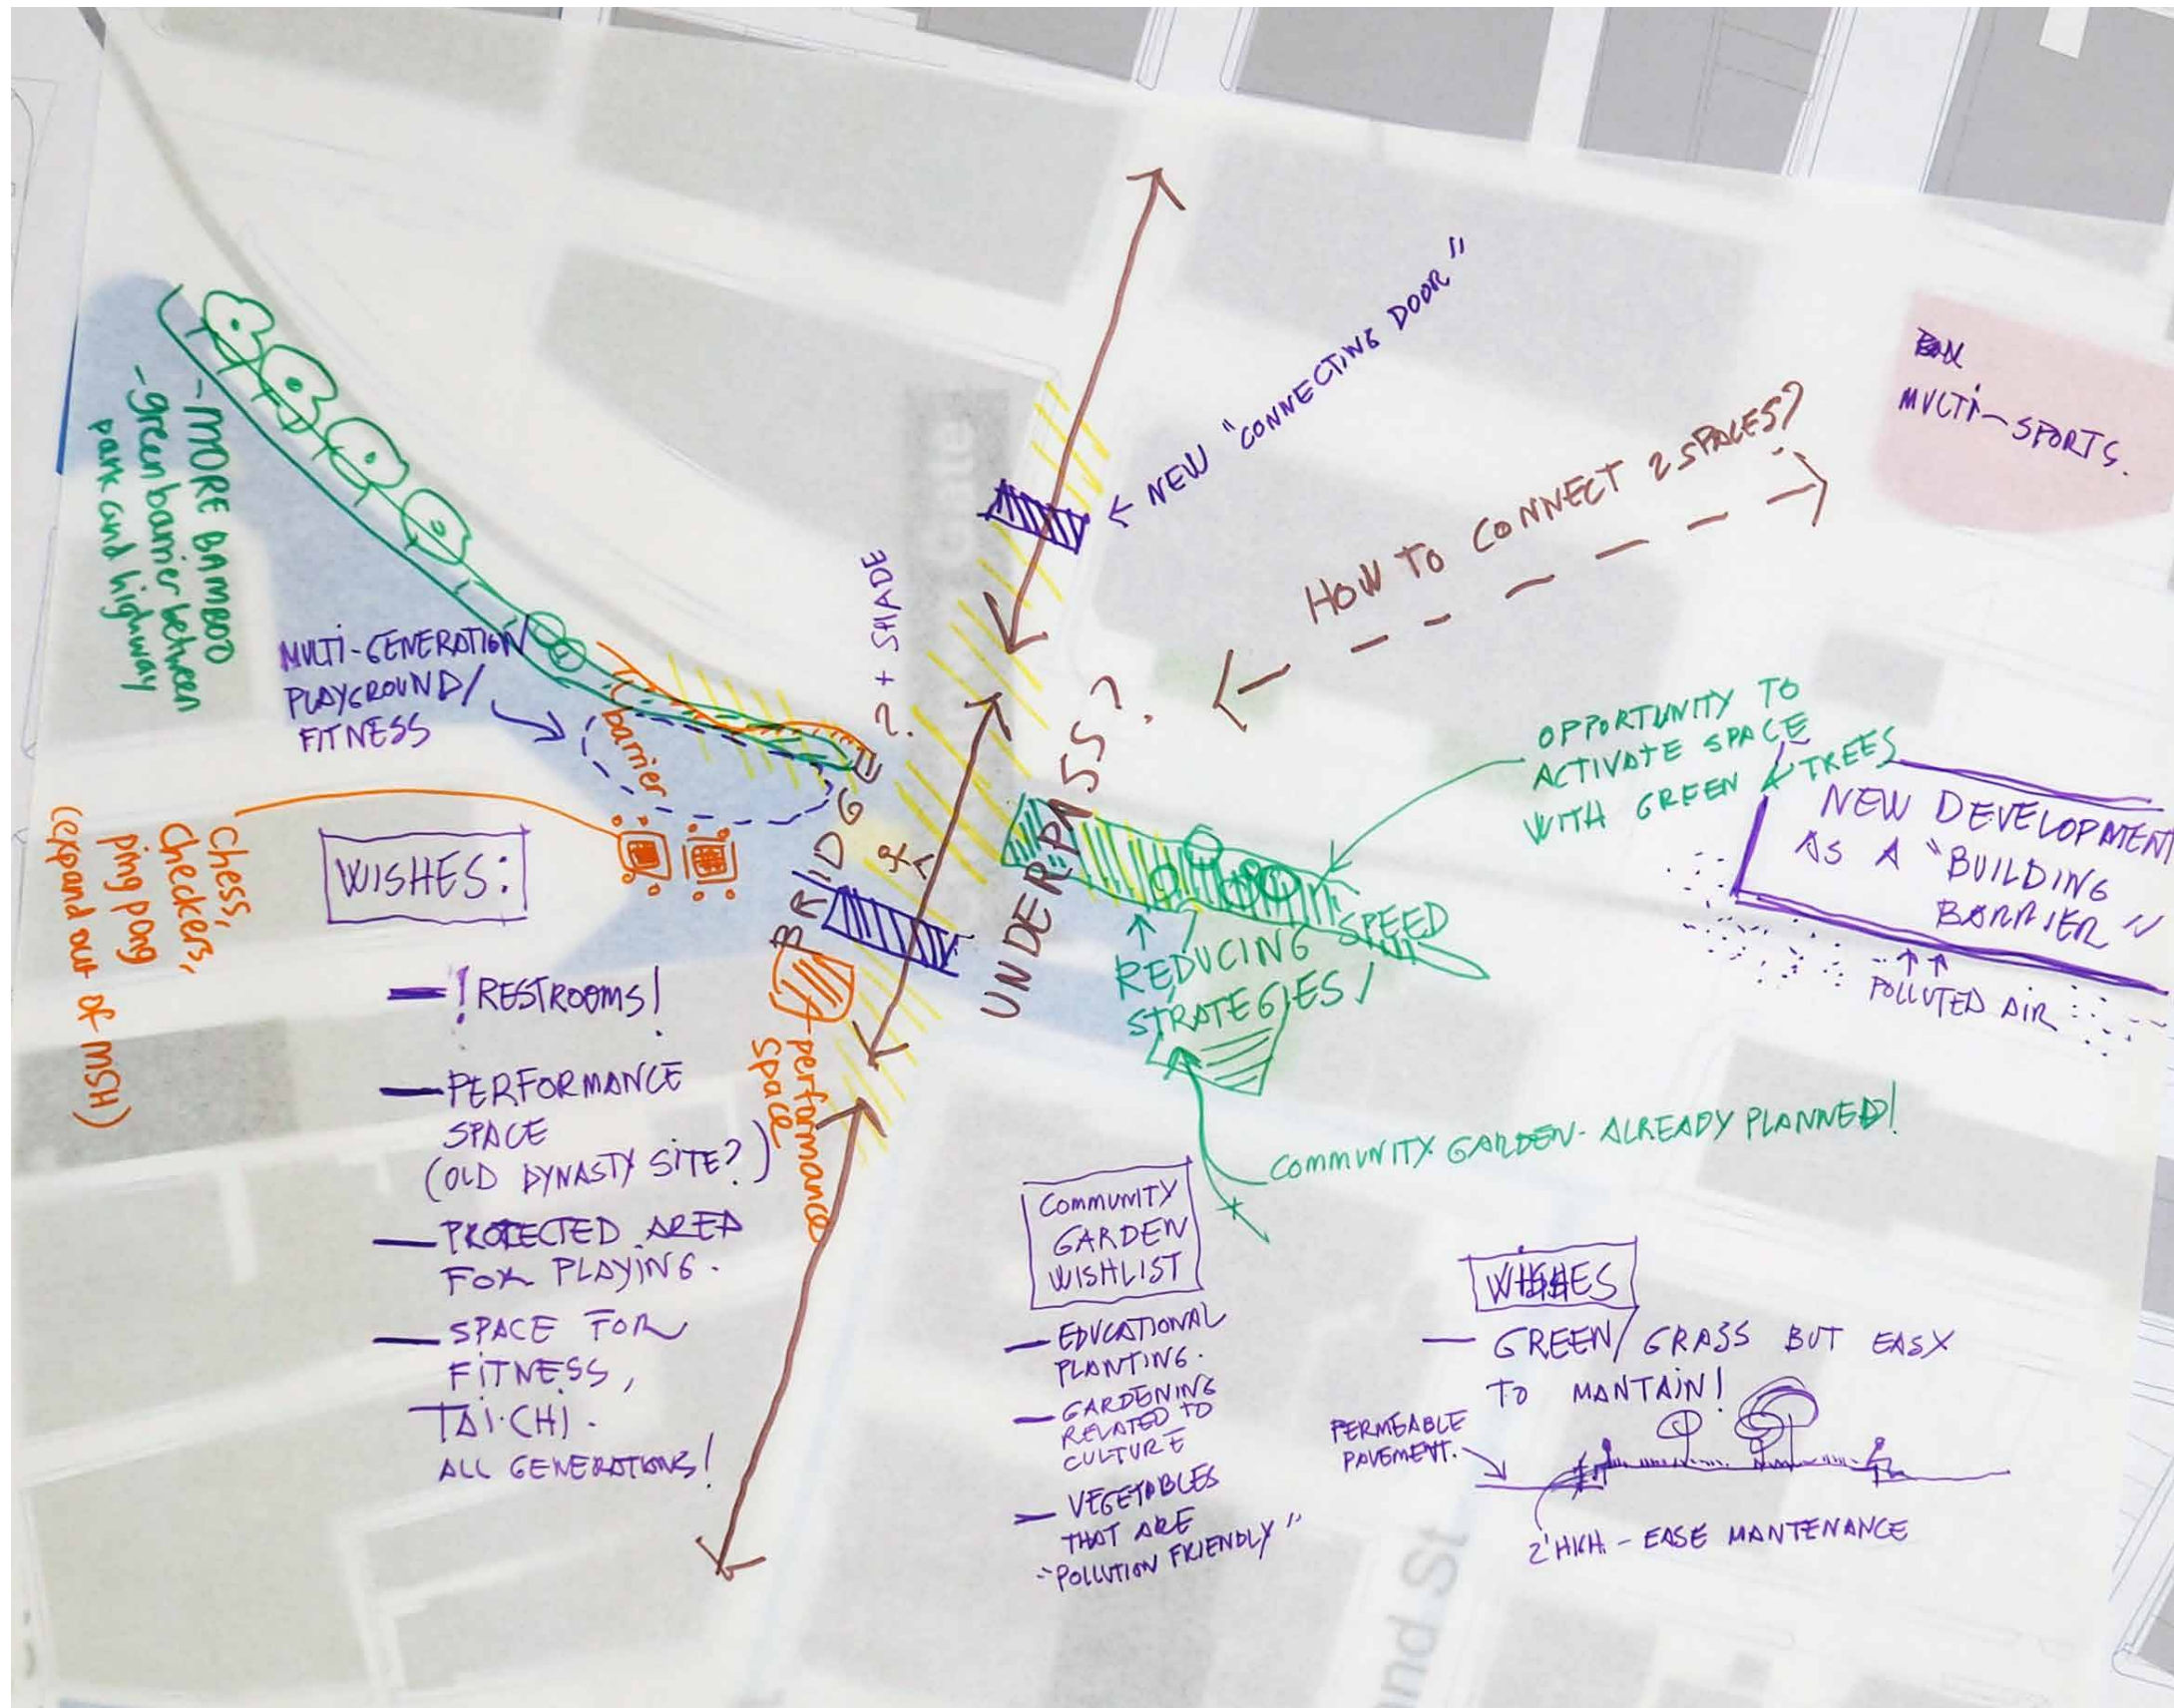 - MORE BAMBOO
- green barrier between
park and highway
MULTI-GENERATION
PLAYGROUND/
FITNESS
barrier
chess,
checkers,
ping pong
(expand out of MSH)
WISHES:
! RESTROOMS!
PERFORMANCE
SPACE
(OLD DYNASTY SITE?)
PROTECTED AREA
FOR PLAYING.
SPACE FOR
FITNESS,
TAI-CHI.
ALL GENERATIONS!
performance
space
BRIDGE ?. + SHADE
Gate
UNDERPASS?.
← NEW "CONNECTING DOOR"
HOW TO CONNECT 2 SPACES?
MULTI-SPORTS.
OPPORTUNITY TO
ACTIVATE SPACE
WITH GREEN & TREES
NEW DEVELOPMENT
AS A "BUILDING
BARRIER"
POLLUTED AIR
REDUCING SPEED
STRATEGIES!
COMMUNITY GARDEN - ALREADY PLANNED!
COMMUNITY
GARDEN
WISHLIST
- EDUCATIONAL
PLANTING.
- GARDENING
RELATED TO
CULTURE
- VEGETABLES
THAT ARE
"POLLUTION FRIENDLY"
WISHES
- GREEN/GRASS BUT EASY
TO MANTAIN!
PERMEABLE
PAVEMENT.
2' HIGH. - EASE MANTENANCE
and St